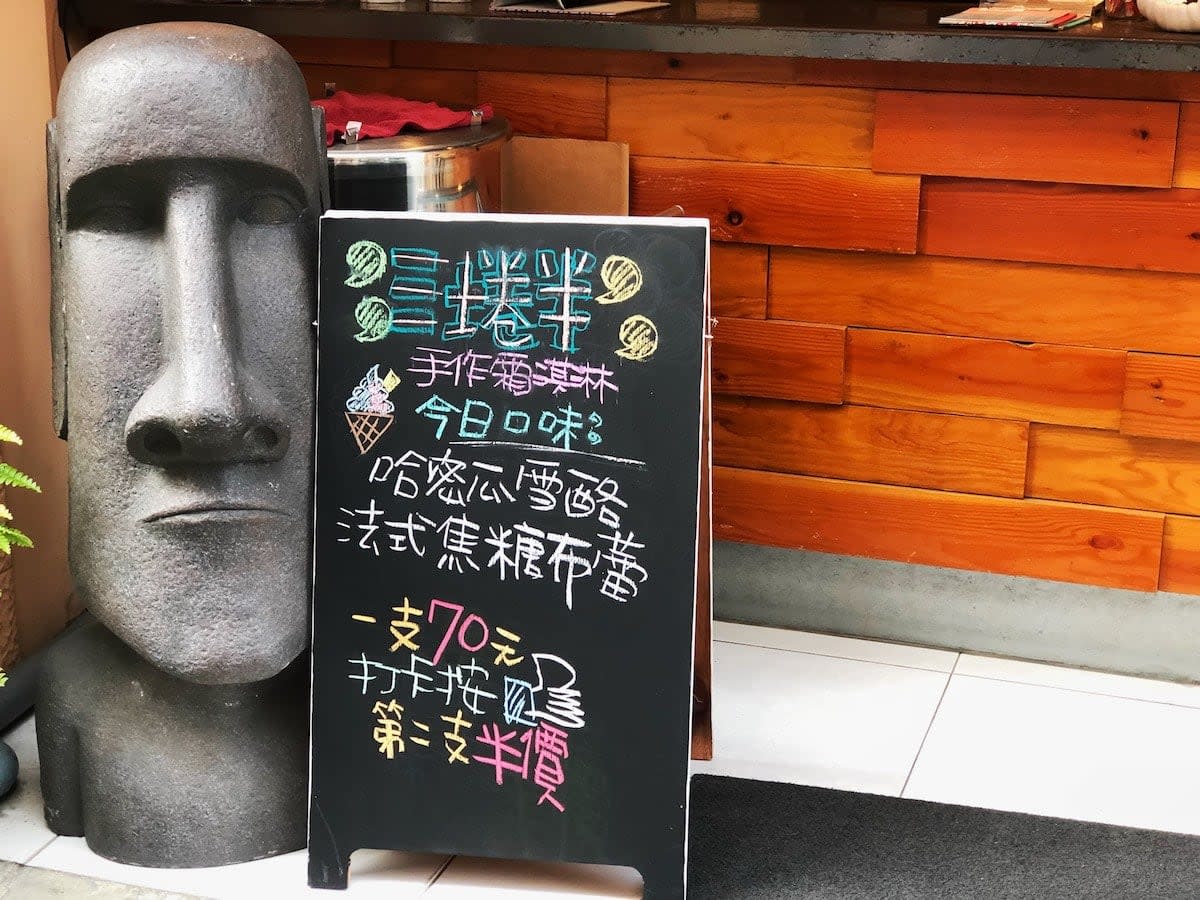 捲半
手作霜淇林
今日口味:
哈密瓜雪酪
法式焦糖布蕾
一支70元
打卡按
第二支半價